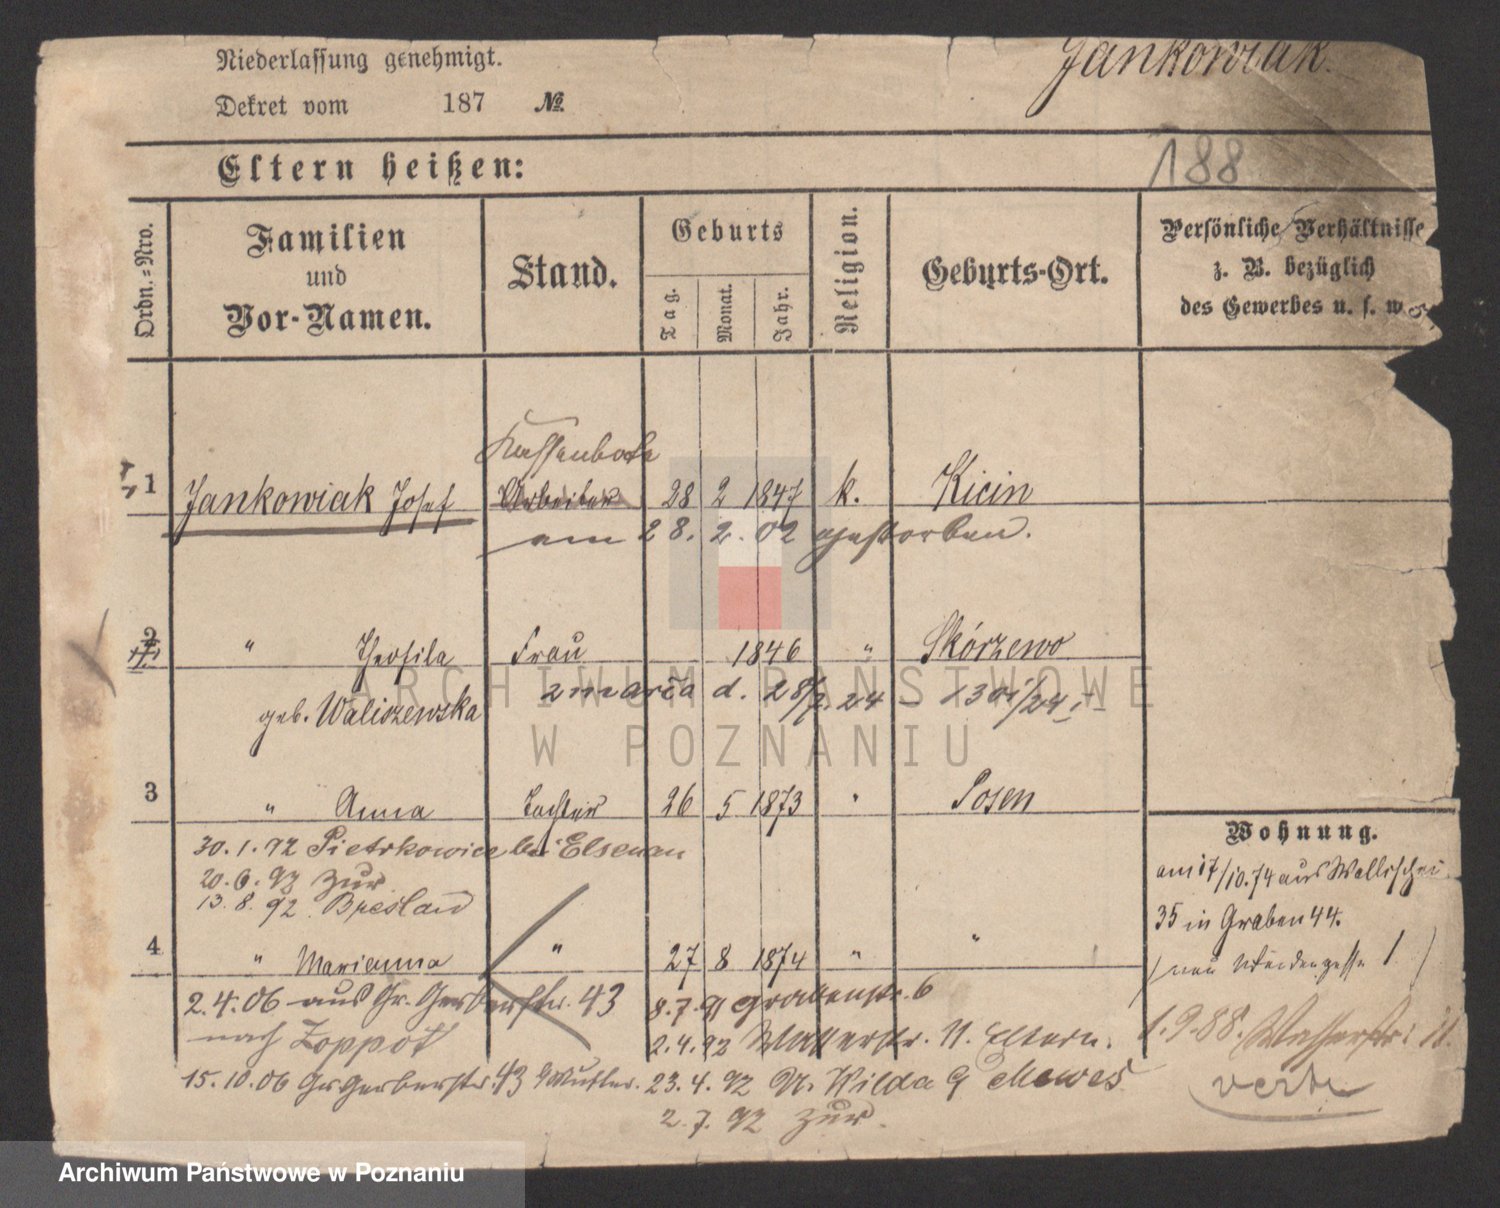 Niederlassung genehmigt.
Jankowiak.
Dekret vom 187 №
Eltern heißen:
188
Ordn.=Nro.
Familien und Vor-Namen.
Stand.
Geburts
Tag. Monat. Jahr.
Religion.
Geburts-Ort.
Persönliche Verhältnisse
z. B. bezüglich
des Gewerbes u. s. w.
Kassenbote
1 Jankowiak Josef Arbeiter 28 2 1847 k. Kicin
am 28. 2. 02 gestorben.
2 " Theofila Frau 1846 " Skórzewo
geb. Waliszewska zmarła d. 28/2 24 - 1301/24
3 " Anna Tochter 26 5 1873 " Posen
30.1.92 Pietrkowice bei Elsenau
20.6.92 zur
13.8.92 Breslau
4 " Marianna " 27 8 1874 " "
2.4.06 aus Gr. Gerberstr. 43
nach Zoppot
8.7.91 Grabenstr. 6
2.4.92 Wasserstr. 11. Eltern.
15.10.06 Gr Gerberstr. 43 Mutter. 23.4.92 N. Wilda 9 Mewes
2.7.92 zur.
Wohnung.
am 17/10.74 aus Wallischei
35 in Graben 44.
1.9.88. Wasserstr:
verte
ARCHIWUM PAŃSTWOWE
W POZNANIU
Archiwum Państwowe w Poznaniu